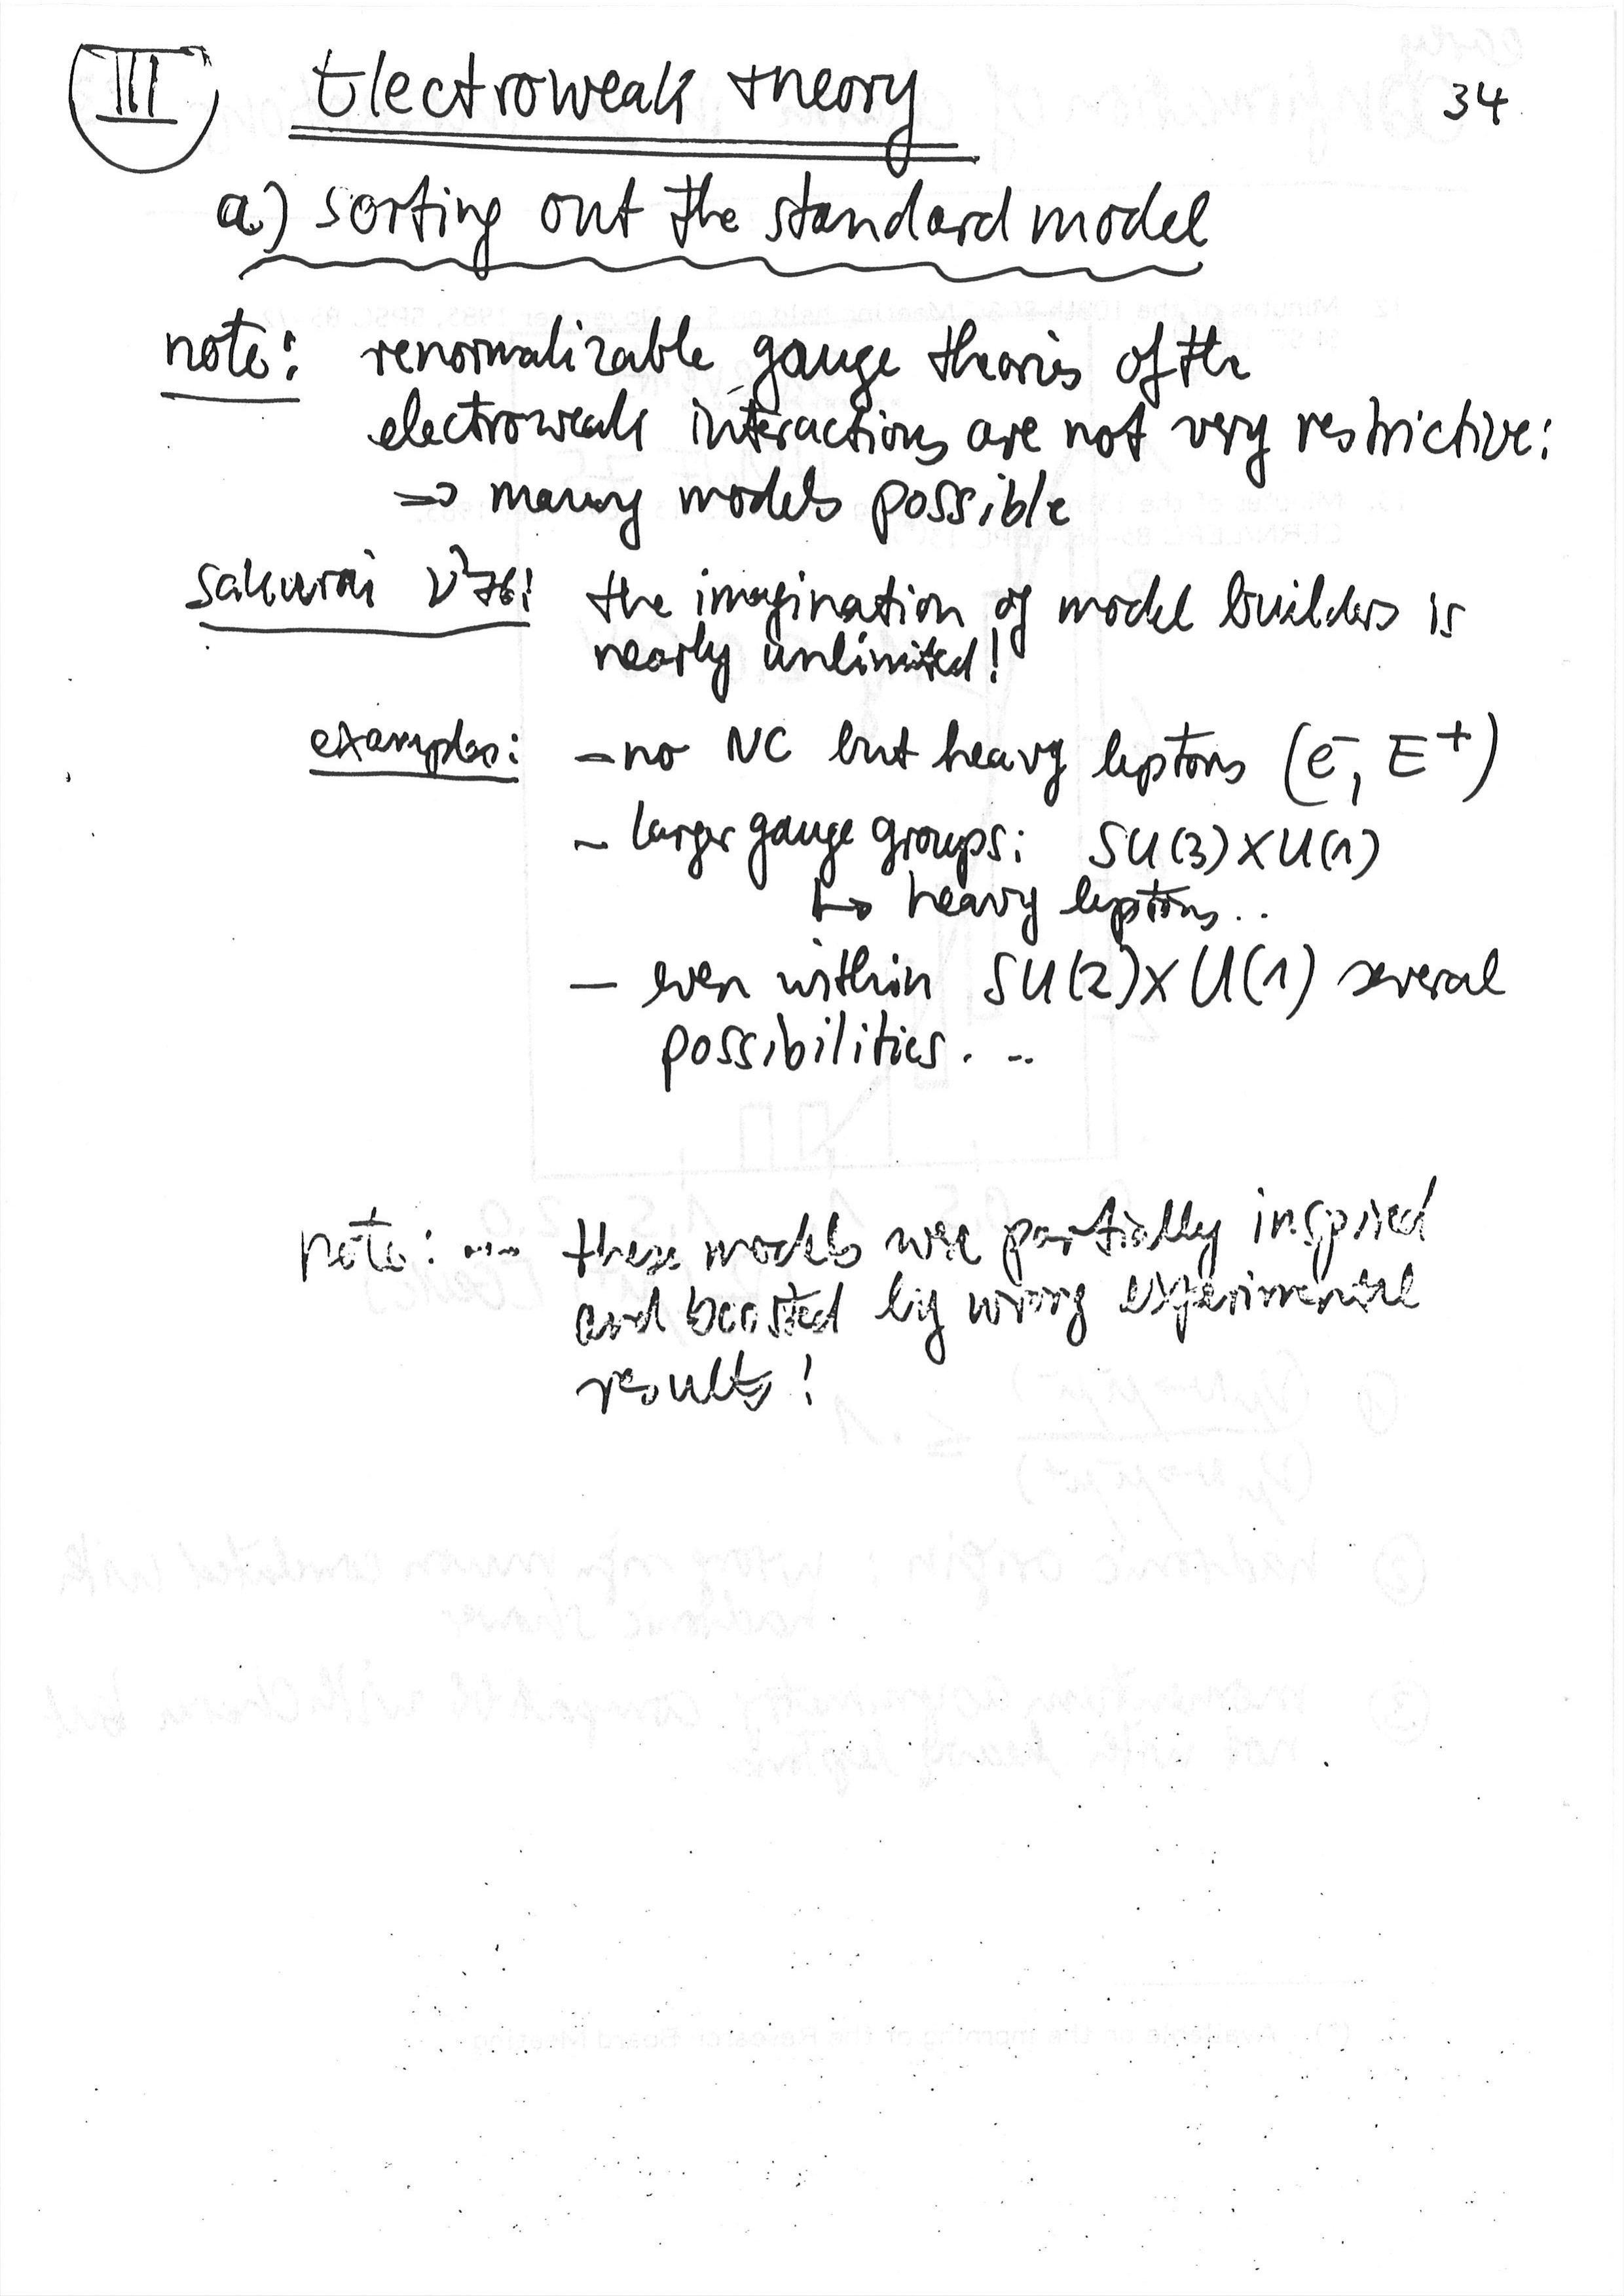 III Electroweak theory 34
a.) sorting out the standard model
note: renormalizable gauge theories of the
electroweak interactions are not very restrictive:
=> many models possible
Sakurai ν'76: the imagination of model builders is
nearly unlimited!
examples: - no NC but heavy leptons (e⁻, E⁺)
- larger gauge groups: SU(3)xU(1)
↳ heavy leptons..
- even within SU(2)xU(1) several
possibilities...
note: ... these models were partially inspired
and boosted by wrong experimental
results!